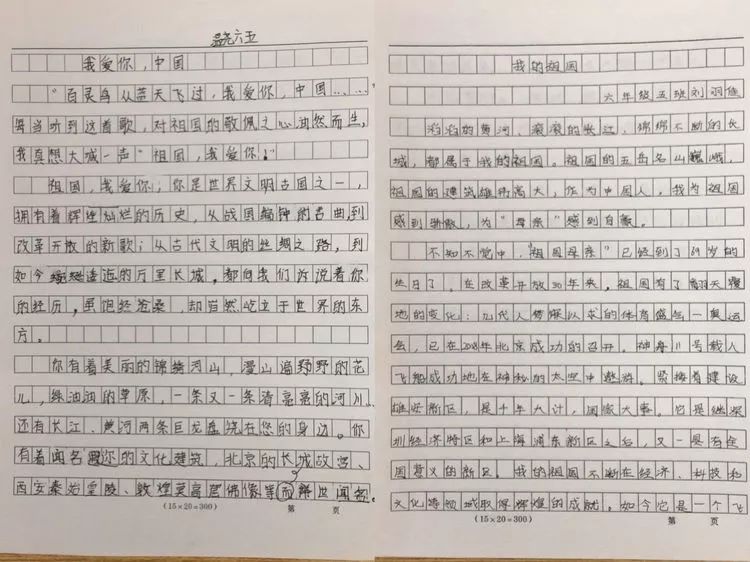 六五
我爱你，中国
“百灵鸟从蓝天飞过，我爱你，中国……”
每当听到这首歌，对祖国的敬佩之心油然而生，
我真想大喊一声“祖国，我爱你！”
祖国，我爱你；你是世界文明古国之一，
拥有着辉煌灿烂的历史，从战国编钟的名曲，到
改革开放的新歌；从古代文明的丝绸之路，到
如今蜿蜒的万里长城，都向我们诉说着你
的经历，虽饱经沧桑，却岿然屹立于世界的东
方。
你有着美丽的锦绣河山，漫山遍野野的花
儿，绿油油的草原，一条又一条清亮亮的河川，
还有长江、黄河两条巨龙盘绕在您的身边。你
有着闻名的文化建筑，北京的长城故宫、
西安秦始皇陵、敦煌莫高窟佛像等而举世闻名。
(15×20=300) 第 页
我的祖国
六年级五班刘羽佳
滔滔的黄河、滚滚的长江、绵绵不断的长
城，都属于我的祖国。祖国的五岳名山巍峨，
祖国的建筑雄伟高大，作为中国人，我为祖国
感到骄傲，为“母亲”感到自豪。
不知不觉中，“祖国母亲”已经到了69岁的
生日了。在改革开放30年来，祖国有了翻天覆
地的变化：几代人梦寐以求的体育盛会—奥运
会，已在2008年北京成功的召开。神舟11号载人
飞船成功地在神秘的太空中遨游。紧接着建设
雄安新区，是千年大计，国家大事。它是继深
圳经济特区和上海浦东新区之后，又一具有全
国意义的新区。我的祖国不断在经济、科技和
文化等领域取得辉煌的成就。如今它是一个飞
(15×20=300) 第 页